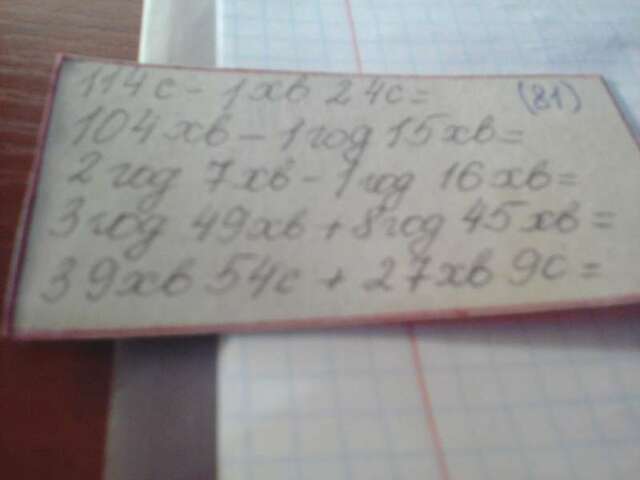 114с - 1хв 24с= (81)
104хв - 1год 15хв=
2год 7хв - 1год 16хв=
3год 49хв + 8год 45хв=
39хв 54с + 27хв 9с=